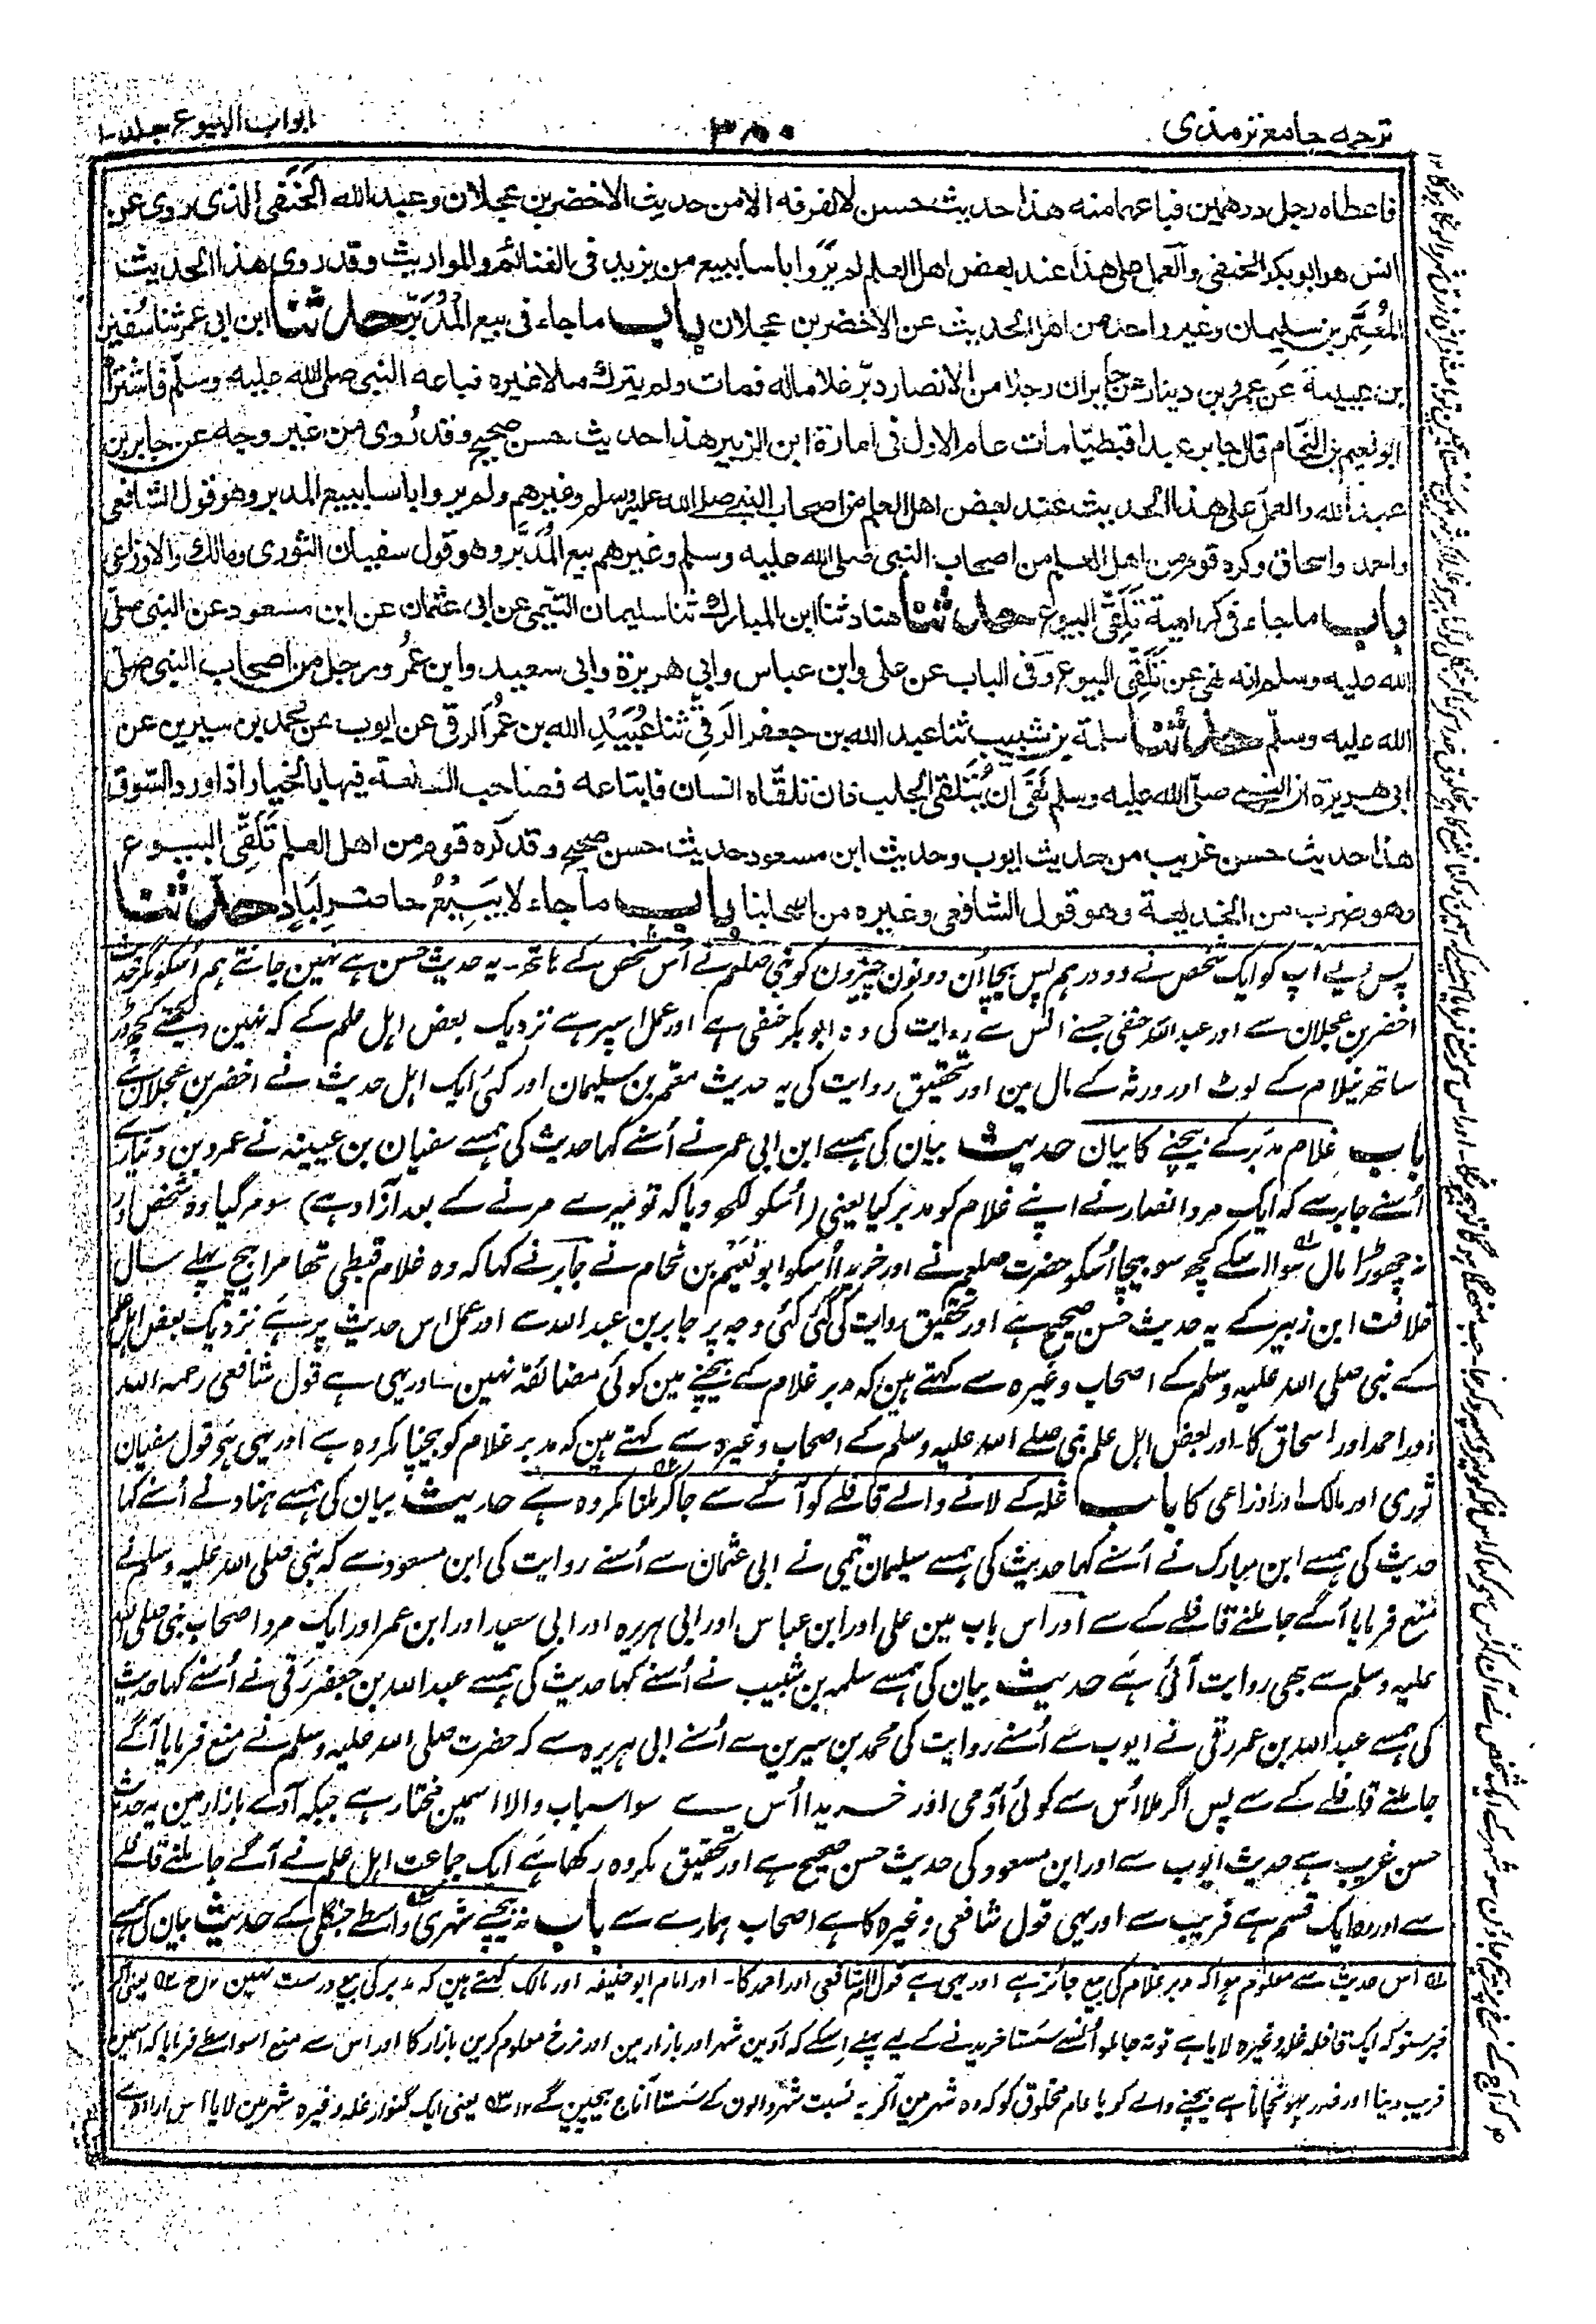 ترجمه جامع ترمذی
۳۸۰
ابواب البیوع جلد ۱
فاعطاه رجل درهمین فباعهما منه هذا حدیث حسن لا نعرفه الا من حدیث الاخضر بن عجلان وعبد الله الحَنَفی الذی روی عن
انس هو ابو بکر الحنفی والعمل علی هذا عند بعض اهل العلم لم یَرَوا باسا ببیع من یزید فی الغنائم والمواریث وقد روی هذا الحدیث
المُعتَمِر بن سلیمان وغیر واحد من اهل الحدیث عن الاخضر بن عجلان باب ما جاء فی بیع المُدَبَّر حدثنا ابن ابی عمر ثنا سُفین
بن عیینة عن عمرو بن دینار عن جابر ان رجلا من الانصار دبّر غلاما له فمات ولم یترك مالا غیره فباعه النبی صلی الله علیه وسلّم فاشتراه
ابو نعیم بن النحّام قال جابر عبدا قبطیّا مات عام الاول فی امارة ابن الزبیر هذا حدیث حسن صحیح وقد رُوی من غیر وجه عن جابر بن
عبد الله والعمل علی هذا الحدیث عند بعض اهل العلم من اصحاب النبی صلی الله علیه وسلم وغیرهم ولم یروا باسا ببیع المدبر وهو قول الشافعی
واحمد واسحاق وکره قوم من اهل العلم من اصحاب النبی صلی الله علیه وسلم وغیرهم بیع المُدَبَّر وهو قول سفیان الثوری ومالك والاوزاعی
باب ما جاء فی کراهیة تَلَقِّی البیوع حدثنا هناد ثنا ابن المبارك ثنا سلیمان التَّیمی عن ابی عثمان عن ابن مسعود عن النبی صلی
الله علیه وسلم انه نهی عن تَلَقِّی البیوع وفی الباب عن علی وابن عباس وابی هریرة وابی سعید وابن عُمَر ورجل من اصحاب النبی صلی
الله علیه وسلّم حدثنا سلمة بن شبیب ثنا عبد الله بن جعفر الرَقّی ثنا عُبَیْدِ الله بن عمرو الرقی عن ایوب عن محمد بن سیرین عن
ابی هریرة ان النبی صلّی الله علیه وسلم نَهَی اَن یُّتلقی الجلب فان تلقّاه انسان فابتاعه فصاحب السلعة فیها بالخیار اذا ورد السّوق
هذا حدیث حسن غریب من حدیث ایوب وحدیث ابن مسعود حدیث حسن صحیح وقد کره قوم من اهل العلم تَلَقِّی البیوع
وهو ضرب من الخدیعة وهو قول الشافعی وغیره من اصحابنا باب ما جاء لا یَبِیْعُ حاضر لِبَادٍ حدثنا
پس دیے آپ کو ایک شخص نے دو درہم پس بیچا اُن دونون چیزون کو نبی صلعم نے اُس شخص کے ہاتھ۔ یہ حدیث حسن ہے نہین جانتے ہم اسکو مگر حدیث
اخضر بن عجلان سے اور عبد اللہ حنفی جسنے انس سے روایت کی وہ ابو بکر حنفی ہے اور عمل اسپر ہے نزدیک بعض اہل علم کے کہ نہین دیکھتے کچھ ڈر
ساتھ نیلام کے لوٹ اور ورثہ کے مال مین اور تحقیق روایت کی یہ حدیث معتمر بن سلیمان اور کئی ایک اہل حدیث نے اخضر بن عجلان سے
باب غلام مدبر کے بیچنے کا بیان حدیث بیان کی ہمسے ابن ابی عمر نے اُسنے کہا حدیث کی ہمسے سفیان بن عیینہ نے عمرو بن دینار سے
اُسنے جابر سے کہ ایک مرد انصار نے اپنے غلام کو مدبر کیا یعنی (اُسکو لکھ دیا کہ تو میرے مرنے کے بعد آزاد ہے) سو مر گیا وہ شخص اور
نہ چھوڑا مال سوا اسکے کچھ سو بیچا اُسکو حضرت صلعم نے اور خریدا اُسکو ابو نعیم بن نحام نے جابر نے کہا کہ وہ غلام قبطی تھا مرا بیچ پہلے سال
خلافت ابن زبیر کے یہ حدیث حسن صحیح ہے اور تحقیق روایت کی گئی کئی وجہ پر جابر بن عبد اللہ سے اور عمل اس حدیث پر ہے نزدیک بعض اہل علم
کے نبی صلی اللہ علیہ وسلم کے اصحاب وغیرہ سے کہتے ہین کہ مدبر غلام کے بیچنے مین کوئی مضائقہ نہین۔ اور یہی ہے قول شافعی رحمہ اللہ
اور احمد اور اسحاق کا۔ اور بعض اہل علم نبی صلے اللہ علیہ وسلم کے اصحاب وغیرہ سے کہتے ہین کہ مدبر غلام کو بیچنا مکروہ ہے اور یہی ہے قول سفیان
ثوری اور مالک اور اوزاعی کا باب غلہ کے لانے والے قافلے کو آگے سے جا کر ملنا مکروہ ہے حدیث بیان کی ہمسے ہناد نے اُسنے کہا
حدیث کی ہمسے ابن مبارک نے اُسنے کہا حدیث کی ہمسے سلیمان تیمی نے ابی عثمان سے اُسنے روایت کی ابن مسعود سے کہ نبی صلی اللہ علیہ وسلم نے
منع فرمایا آگے جا ملنے قافلے کے سے اور اس باب مین علی اور ابن عباس اور ابی ہریرہ اور ابی سعید اور ابن عمر اور ایک مرد اصحاب نبی صلی اللہ
علیہ وسلم سے بھی روایت آئی ہے حدیث بیان کی ہمسے سلمہ بن شبیب نے اُسنے کہا حدیث کی ہمسے عبد اللہ بن جعفر رقی نے اُسنے کہا حدیث
کی ہمسے عبد اللہ بن عمر رقی نے ایوب سے اُسنے روایت کی محمد بن سیرین سے اُسنے ابی ہریرہ سے کہ حضرت صلی اللہ علیہ وسلم نے منع فرمایا آگے
جا ملنے قافلے کے سے پس اگر ملا اُس سے کوئی آدمی اور خریدا اُس سے سو اسباب والا اسمین مختار ہے جبکہ آوے بازار مین یہ حدیث
حسن غریب ہے حدیث ایوب سے اور ابن مسعود کی حدیث حسن صحیح ہے اور تحقیق مکروہ رکھا ہے ایک جماعت اہل علم نے آگے جا ملنے قافلے
سے اور وہ ایک قسم ہے فریب سے اور یہی قول شافعی وغیرہ کا ہے اصحاب ہمارے سے باب نہ بیچے شہری واسطے جنگلی کے حدیث بیان کی ہمسے
۱؎ اس حدیث سے معلوم ہوا کہ مدبر غلام کی بیع جائز ہے اور یہی ہے قول امام شافعی اور احمد کا۔ اور امام ابو حنیفہ اور مالک کہتے ہین کہ مدبر کی بیع درست نہین ۱۲ ح ۲؎ یعنی اگر
خبر سنو کہ ایک قافلہ غلہ وغیرہ لایا ہے تو نہ جا ملو اُنسے سستا خریدنے کے لیے پہلے اِسکے کہ آوین شہر اور بازار مین اور نرخ معلوم کرین بازار کا اور اس سے منع اسواسطے فرمایا کہ اسمین
فریب دینا اور ضرر پہونچانا ہے بیچنے والے کو یا عام مخلوق کو کہ وہ شہر مین آکر یہ نسبت شہر والون کے سستا اناج بیچین گے ۱۲ ۳؎ یعنی ایک گنوار غلہ وغیرہ شہر مین لایا اس ارادہ سے